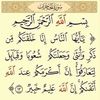 سورة الحجرات
بِسْمِ اللَّهِ الرَّحْمَٰنِ الرَّحِيمِ
يَا أَيُّهَا النَّاسُ إِنَّا خَلَقْنَاكُم مِّن
ذَكَرٍ وَأُنثَىٰ وَجَعَلْنَاكُمْ شُعُوبًا وَقَبَائِلَ
لِتَعَارَفُوا إِنَّ أَكْرَمَكُمْ عِندَ اللَّهِ
أَتْقَاكُمْ إِنَّ اللَّهَ عَلِيمٌ خَبِيرٌ